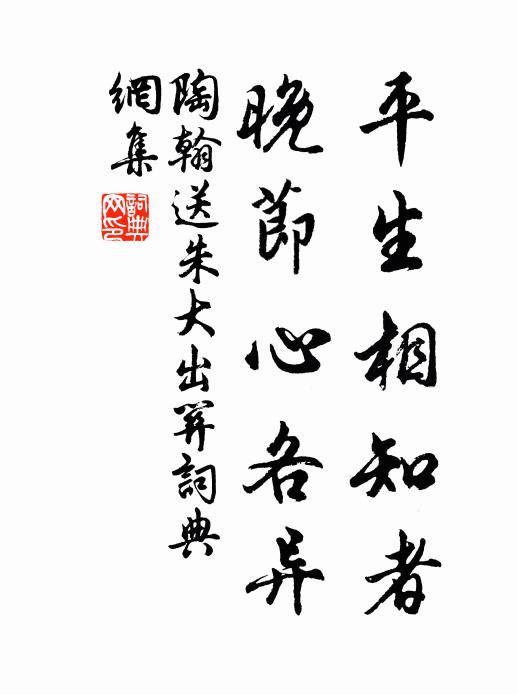 平生相知者
晚節心各异
陶翰送朱大出關詞典
網集
詞典網印